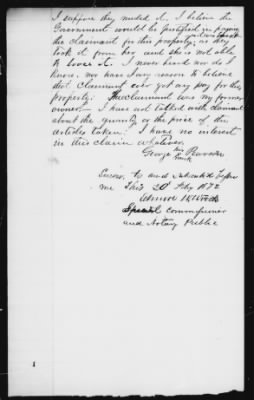 I suppose they needed it. I believe the
Government would be justified in paying
the claimant for this property, as they
took it from her and she is not able
to loose it. I never heard nor do I
know, nor have I any reason to believe
that claimant ever got any pay for this
property. The claimant was my former
owner — I have not talked with claimant
about the quantity or the price of the
articles taken. I have no interest
in this claim whatever.
George his
mark
Sworn to and subscribed before
me this 20th 1872
Special commissioner
and Notary Public